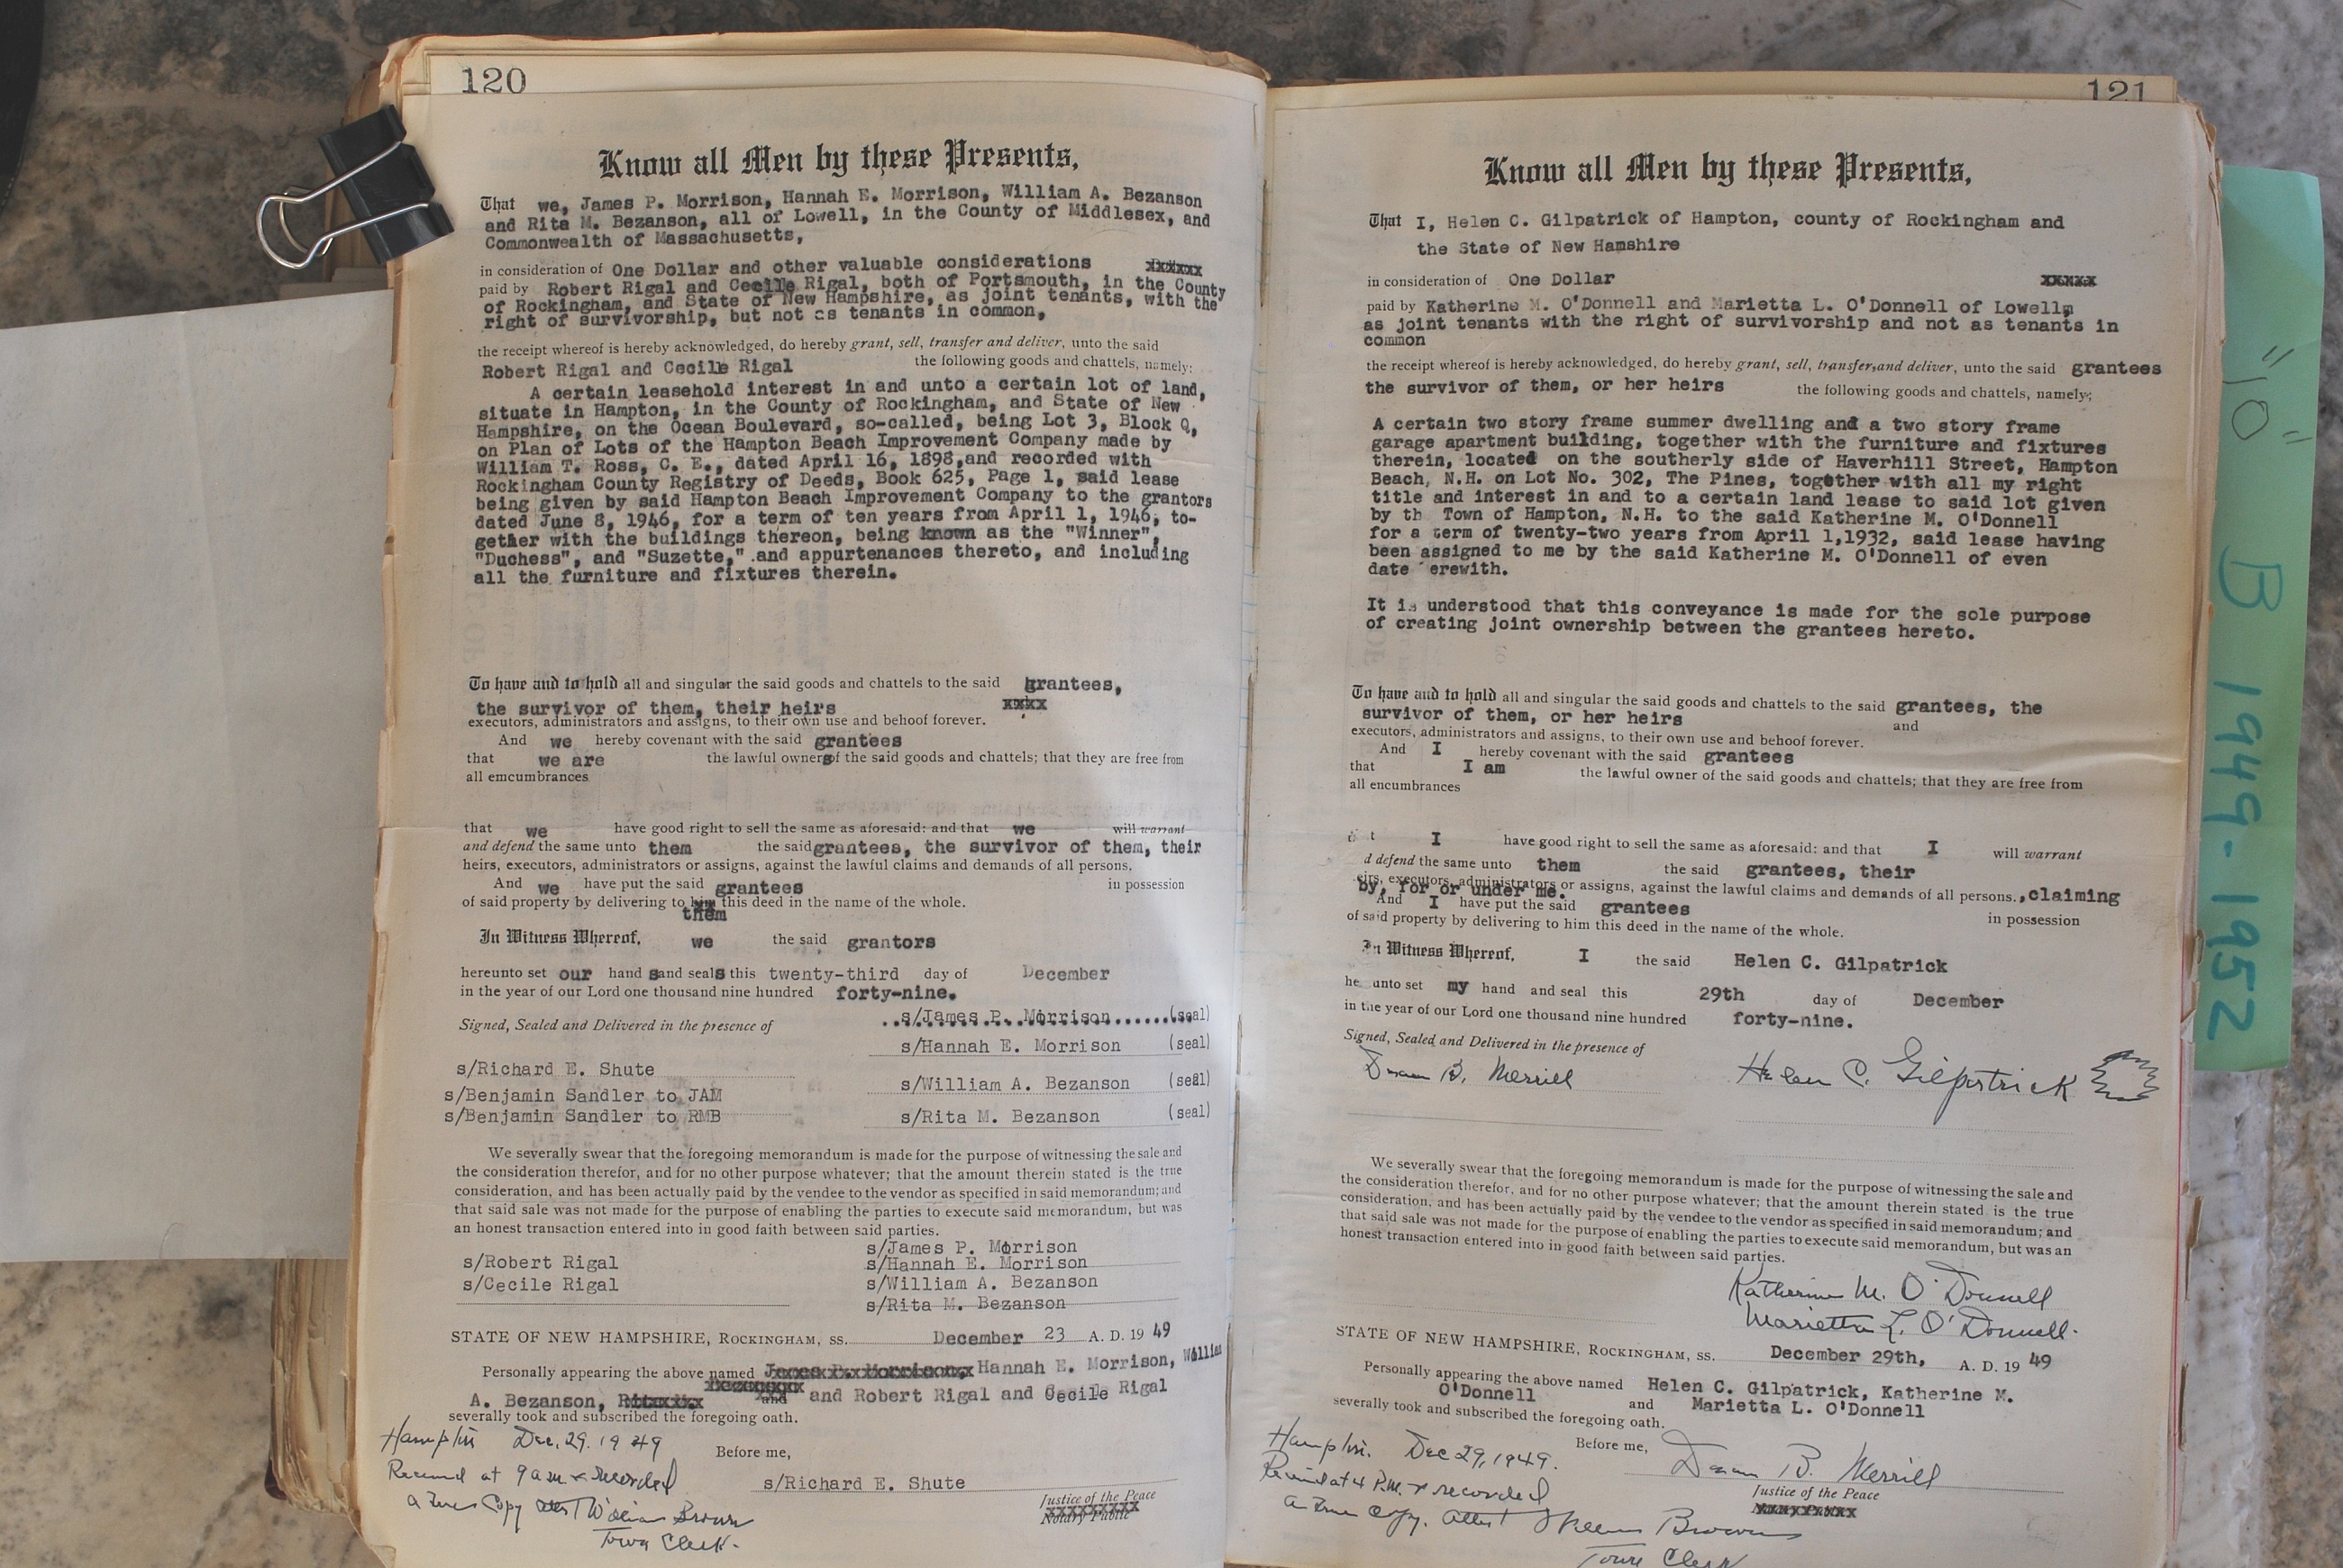 120
Know all Men by these Presents,
That we, James P. Morrison, Hannah E. Morrison, William A. Bezanson
and Rita M. Bezanson, all of Lowell, in the County of Middlesex, and
Commonwealth of Massachusetts,
in consideration of One Dollar and other valuable considerations xxxxxx
paid by Robert Rigal and Cecile Rigal, both of Portsmouth, in the County
of Rockingham, and State of New Hampshire, as joint tenants, with the
right of survivorship, but not as tenants in common,
the receipt whereof is hereby acknowledged, do hereby grant, sell, transfer and deliver, unto the said
Robert Rigal and Cecile Rigal the following goods and chattels, namely:
A certain leasehold interest in and unto a certain lot of land,
situate in Hampton, in the County of Rockingham, and State of New
Hampshire, on the Ocean Boulevard, so-called, being Lot 3, Block Q,
on Plan of Lots of the Hampton Beach Improvement Company made by
William T. Ross, C. E., dated April 16, 1898,and recorded with
Rockingham County Registry of Deeds, Book 625, Page 1, said lease
being given by said Hampton Beach Improvement Company to the grantors
dated June 8, 1946, for a term of ten years from April 1, 1946, to-
gether with the buildings thereon, being known as the "Winner",
"Duchess", and "Suzette," and appurtenances thereto, and including
all the furniture and fixtures therein.
To have and to hold all and singular the said goods and chattels to the said grantees,
the survivor of them, their heirs xxxx
executors, administrators and assigns, to their own use and behoof forever.
And we hereby covenant with the said grantees
that we are the lawful owners of the said goods and chattels; that they are free from
all encumbrances
that we have good right to sell the same as aforesaid: and that we will warrant
and defend the same unto them the said grantees, the survivor of them, their
heirs, executors, administrators or assigns, against the lawful claims and demands of all persons.
And we have put the said grantees in possession
of said property by delivering to him this deed in the name of the whole.
them
In Witness Whereof, we the said grantors
hereunto set our hand sand seals this twenty-third day of December
in the year of our Lord one thousand nine hundred forty-nine.
Signed, Sealed and Delivered in the presence of s/James P. Morrison (seal)
s/Hannah E. Morrison (seal)
s/Richard E. Shute
s/William A. Bezanson (seal)
s/Benjamin Sandler to JAM
s/Benjamin Sandler to RMB s/Rita M. Bezanson (seal)
We severally swear that the foregoing memorandum is made for the purpose of witnessing the sale and
the consideration therefor, and for no other purpose whatever; that the amount therein stated is the true
consideration, and has been actually paid by the vendee to the vendor as specified in said memorandum; and
that said sale was not made for the purpose of enabling the parties to execute said memorandum, but was
an honest transaction entered into in good faith between said parties.
s/James P. Morrison
s/Robert Rigal s/Hannah E. Morrison
s/Cecile Rigal s/William A. Bezanson
s/Rita M. Bezanson
STATE OF NEW HAMPSHIRE, ROCKINGHAM, SS. December 23 A. D. 19 49
Personally appearing the above named Hannah E. Morrison, William
A. Bezanson, and and Robert Rigal and Cecile Rigal
severally took and subscribed the foregoing oath.
Hampton Dec. 29. 1949 Before me,
Received at 9 a m & recorded s/Richard E. Shute
a True Copy attest William Brown Justice of the Peace
Notary Public
Town Clerk.
121
Know all Men by these Presents,
That I, Helen C. Gilpatrick of Hampton, county of Rockingham and
the State of New Hamshire
in consideration of One Dollar xxxxx
paid by Katherine M. O'Donnell and Marietta L. O'Donnell of Lowell,
as joint tenants with the right of survivorship and not as tenants in
common
the receipt whereof is hereby acknowledged, do hereby grant, sell, transfer, and deliver, unto the said grantees
the survivor of them, or her heirs the following goods and chattels, namely;
A certain two story frame summer dwelling and a two story frame
garage apartment building, together with the furniture and fixtures
therein, located on the southerly side of Haverhill Street, Hampton
Beach, N.H. on Lot No. 302, The Pines, together with all my right
title and interest in and to a certain land lease to said lot given
by th Town of Hampton, N.H. to the said Katherine M. O'Donnell
for a term of twenty-two years from April 1,1932, said lease having
been assigned to me by the said Katherine M. O'Donnell of even
date erewith.
It is understood that this conveyance is made for the sole purpose
of creating joint ownership between the grantees hereto.
To have and to hold all and singular the said goods and chattels to the said grantees, the
survivor of them, or her heirs and
executors, administrators and assigns, to their own use and behoof forever.
And I hereby covenant with the said grantees
that I am the lawful owner of the said goods and chattels; that they are free from
all encumbrances
t I have good right to sell the same as aforesaid: and that I will warrant
d defend the same unto them the said grantees, their
eirs, executors, administrators or assigns, against the lawful claims and demands of all persons., claiming
by, for or under me.
And I have put the said grantees in possession
of said property by delivering to him this deed in the name of the whole.
In Witness Whereof, I the said Helen C. Gilpatrick
he unto set my hand and seal this 29th day of December
in the year of our Lord one thousand nine hundred forty-nine.
Signed, Sealed and Delivered in the presence of
Dean B. Merrill Helen C. Gilpatrick
We severally swear that the foregoing memorandum is made for the purpose of witnessing the sale and
the consideration therefor, and for no other purpose whatever; that the amount therein stated is the true
consideration, and has been actually paid by the vendee to the vendor as specified in said memorandum; and
that said sale was not made for the purpose of enabling the parties to execute said memorandum, but was an
honest transaction entered into in good faith between said parties.
Katherine M. O'Donnell
Marietta L. O'Donnell.
STATE OF NEW HAMPSHIRE, ROCKINGHAM, SS. December 29th, A. D. 19 49
Personally appearing the above named Helen C. Gilpatrick, Katherine M.
O'Donnell and Marietta L. O'Donnell
severally took and subscribed the foregoing oath.
Hampton. Dec 29, 1949. Before me, Dean B. Merrill
Received at 4 P.M. & recorded Justice of the Peace
a True Copy. attest William Brown
Town Clerk
"10" B 1949-1952